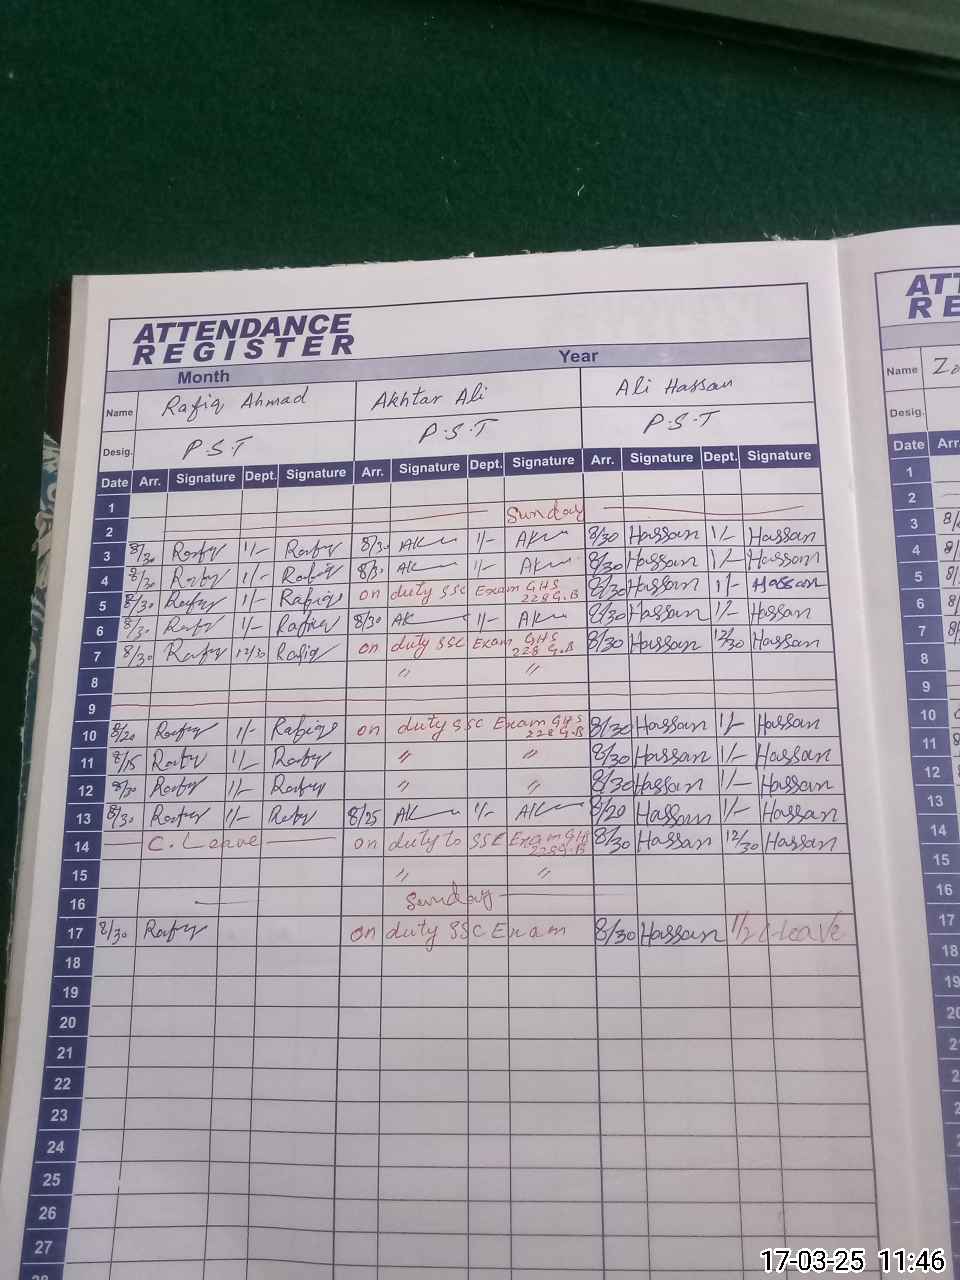 ATTENDANCE
REGISTER
Month Year
Name Rafiq Ahmad Akhtar Ali Ali Hassan
Desig. P.S.T P.S.T P.S.T
Date Arr. Signature Dept. Signature Arr. Signature Dept. Signature Arr. Signature Dept. Signature
1
2 Sunday
3 8/30 Rafiq 1/- Rafiq 8/30 AK 1/- AK 8/30 Hassan 1/- Hassan
4 8/30 Rafiq 1/- Rafiq 8/30 AK 1/- AK 8/30 Hassan 1/- Hassan
5 8/30 Rafiq 1/- Rafiq on duty SSC Exam GHS 228 G.B 8/30 Hassan 1/- Hassan
6 8/30 Rafiq 1/- Rafiq 8/30 AK 1/- AK 8/30 Hassan 1/- Hassan
7 8/30 Rafiq 12/30 Rafiq on duty SSC Exam GHS 228 G.B 8/30 Hassan 12/30 Hassan
8 〃 〃
9
10 8/20 Rafiq 1/- Rafiq on duty SSC Exam GHS 228 G.B 8/30 Hassan 1/- Hassan
11 8/15 Rafiq 1/- Rafiq 〃 〃 8/30 Hassan 1/- Hassan
12 8/30 Rafiq 1/- Rafiq 〃 〃 8/30 Hassan 1/- Hassan
13 8/30 Rafiq 1/- Rafiq 8/25 AK 1/- AK 8/20 Hassan 1/- Hassan
14 C. Leave on duty to SSC Exam GHS 228 G.B 8/30 Hassan 12/30 Hassan
15 〃 〃
16 Sunday
17 8/30 Rafiq on duty SSC Exam 8/30 Hassan 1/2 C-leave
18
19
20
21
22
23
24
25
26
27
28
Name
Desig.
Date Arr.
1
2
3
4
5
6
7
8
9
10
11
12
13
14
15
16
17
18
17-03-25 11:46